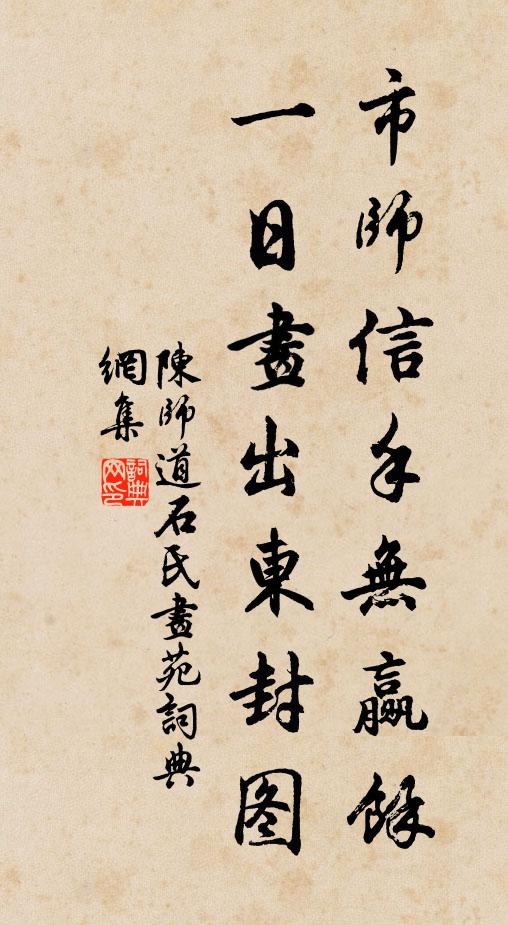 市師信手無贏餘
一日畫出東封图
陳師道石氏畫苑詞典
網集
詞典网印